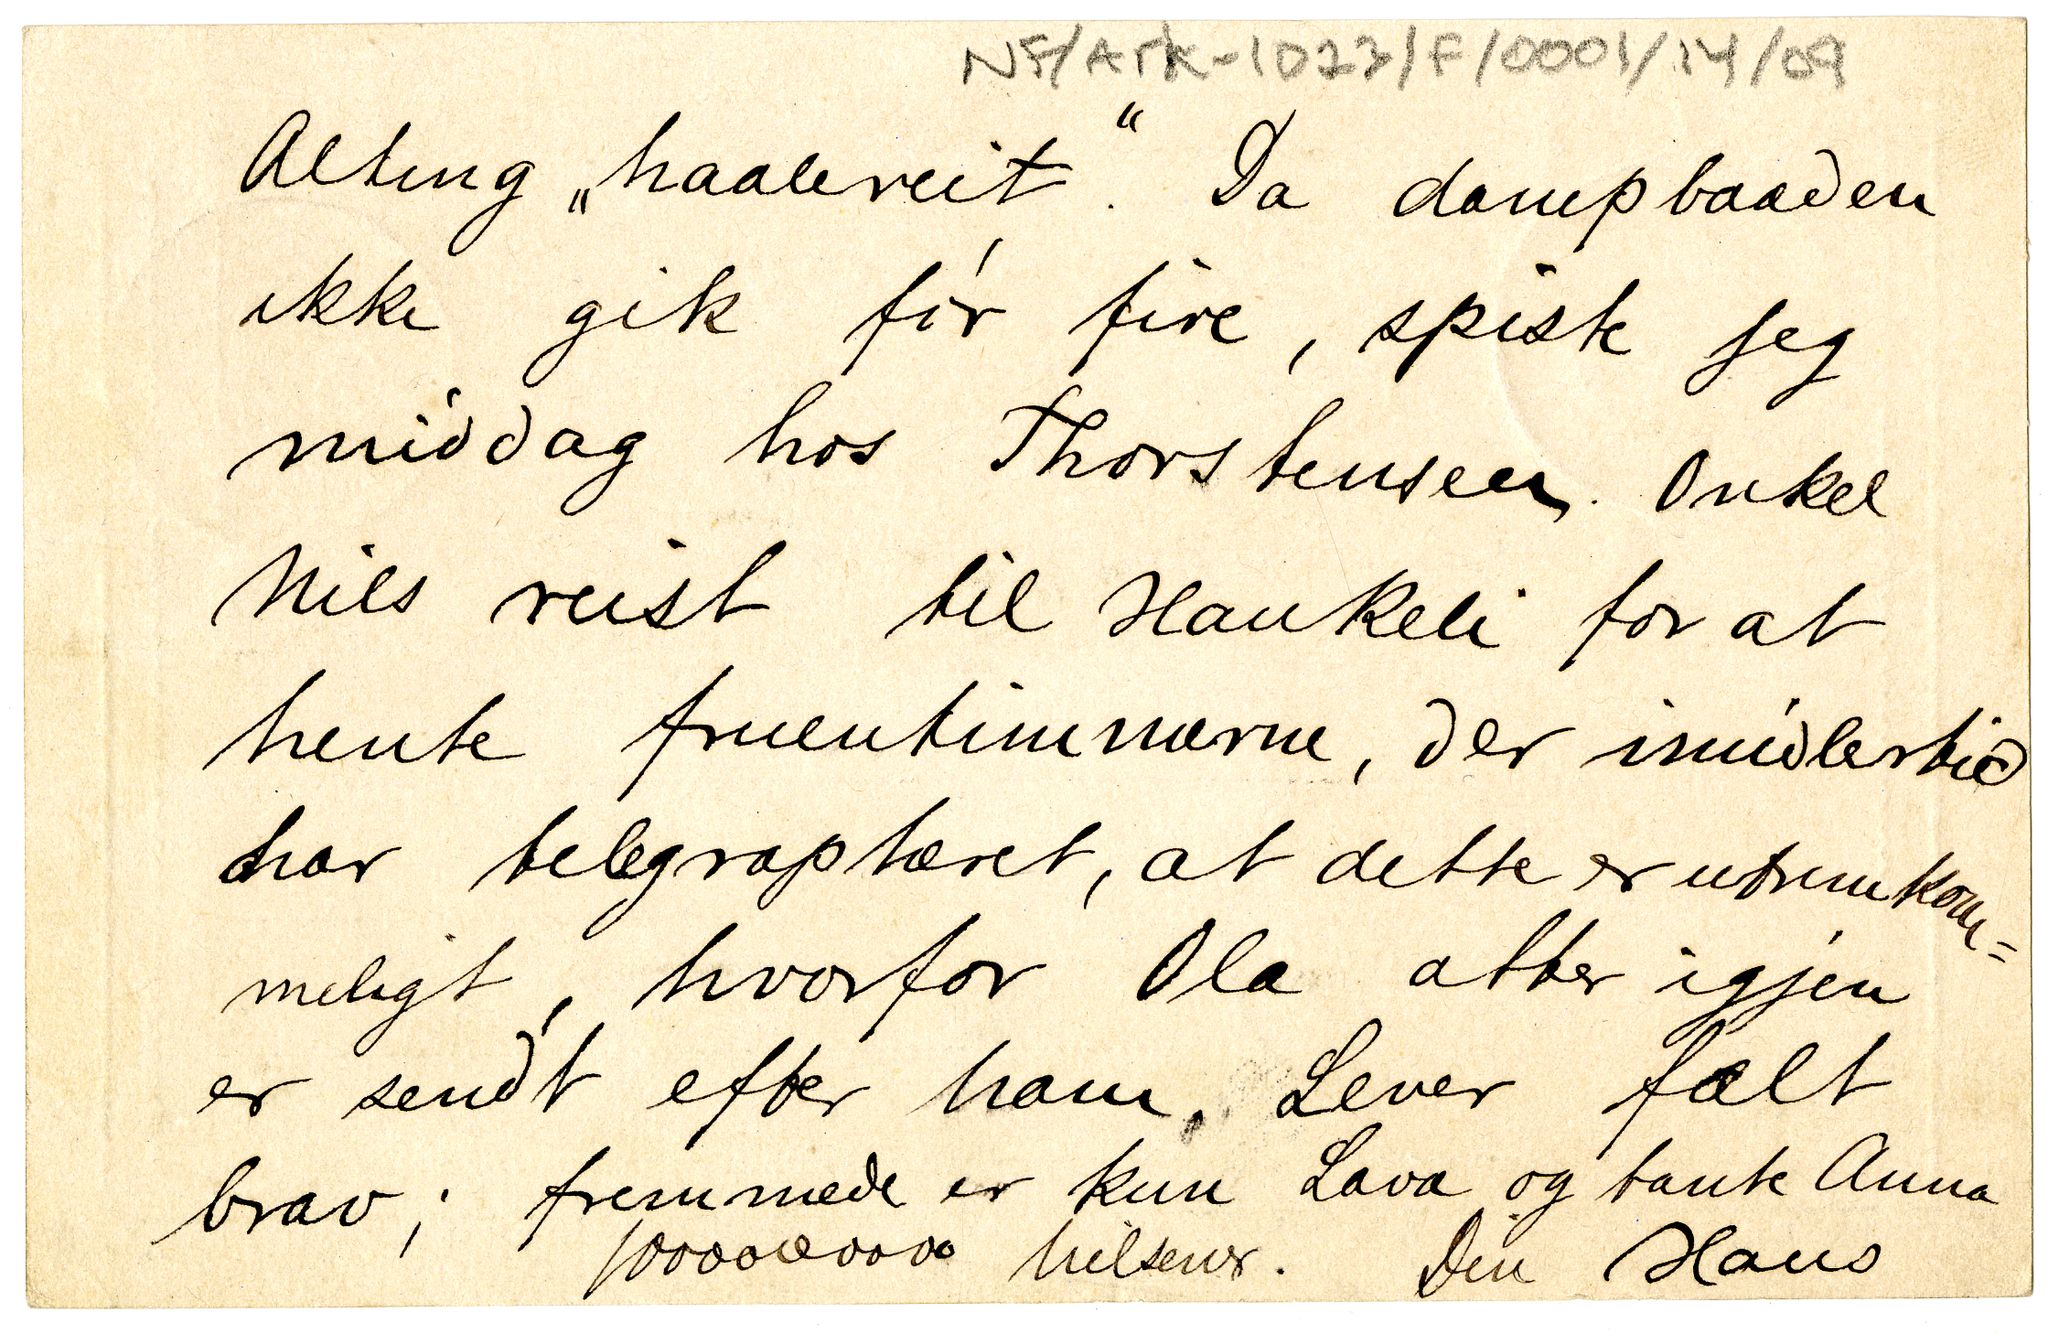 NF/Ark-1023/F/0001/14/09
Alting „haalereit“. Da dampbaaden
ikke gik før fire, spiste jeg
middag hos Thorstensen. Onkel
Nils reist til Haukeli for at
hente fruentimmerne, der imidlertid
har telegraphæret, at dette er ufremkom=
meligt, hvorfor Ola atter igjen
er sendt efter ham. Lever fælt
brav; fremmede er kun Lava og tante Anna
hilsener. Din Hans